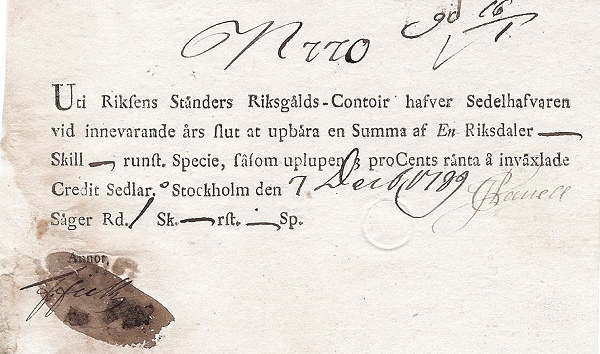 N 770
Uti Rikſens Stånders Riksgålds-Contoir hafver Sedelhafvaren
vid innevarande års ſlut at upbåra en Summa af En Riksdaler —
Skill — runſt. Specie, ſåſom uplupen proCents rånta å invåxlade
Credit Sedlar. Stockholm den 7 Decemb 1799
Såger Rd. 1 Sk. — rſt. — Sp.
Annot.